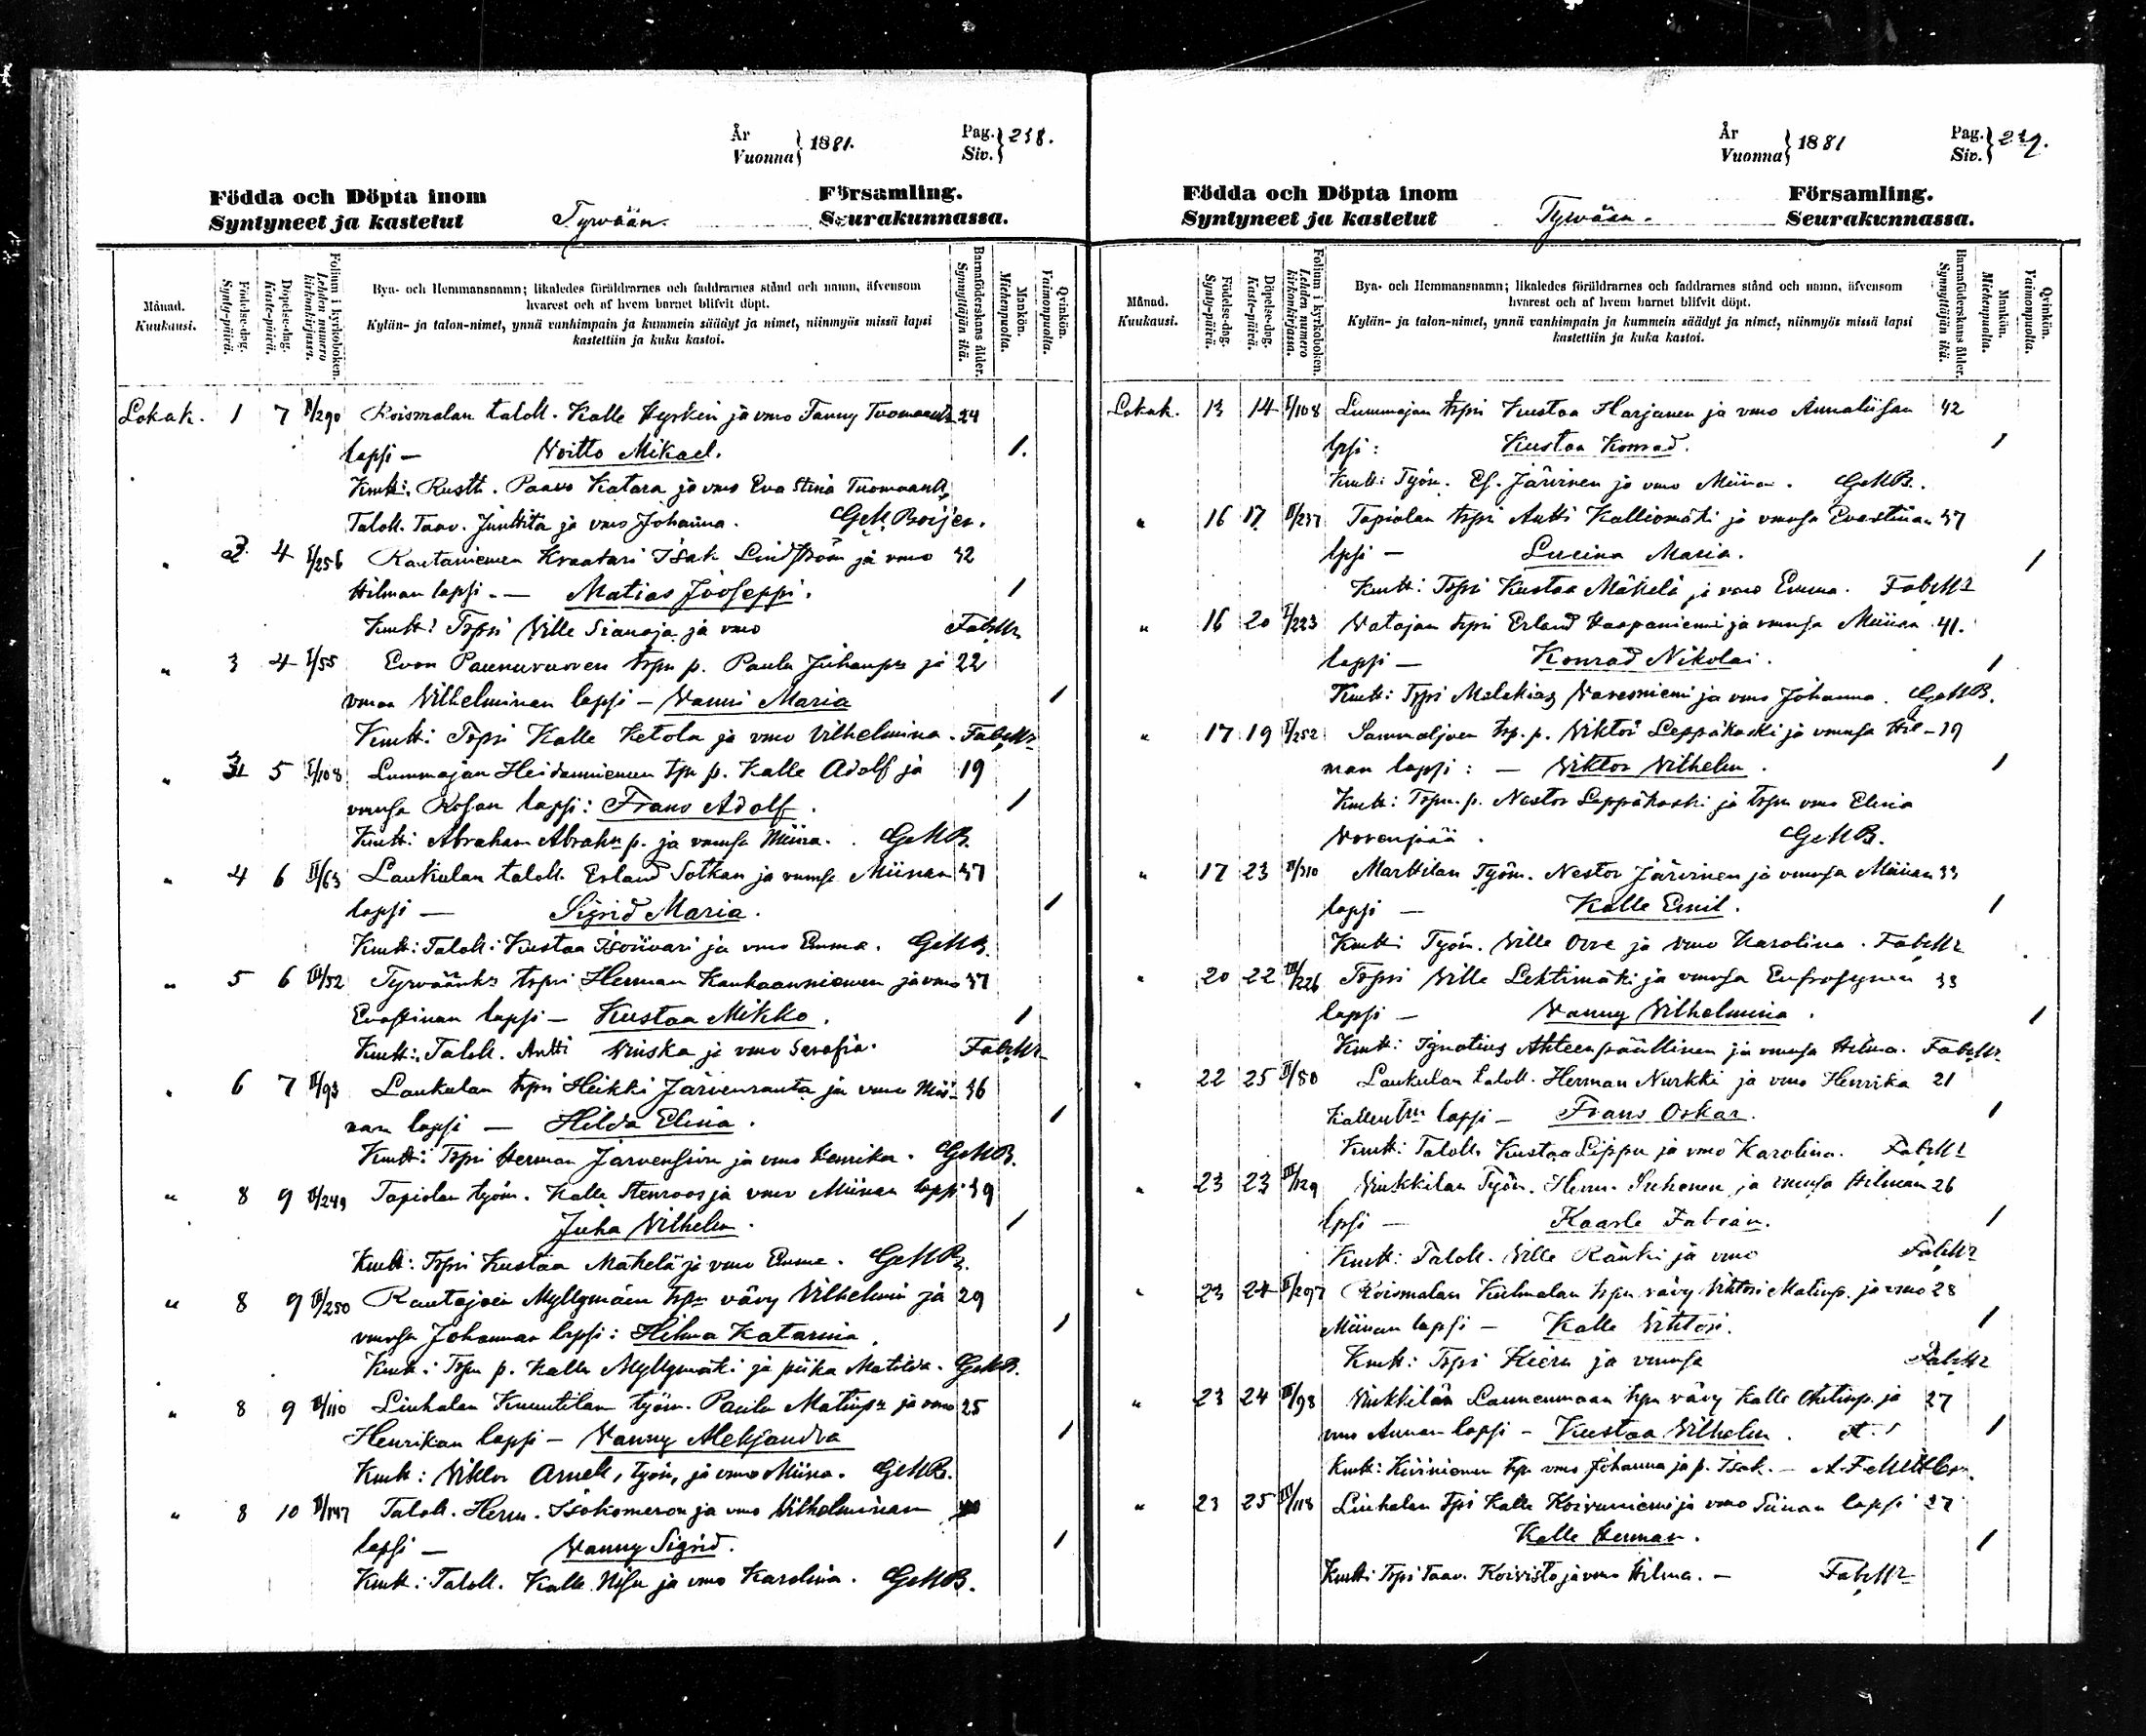 År
Vuonna } 1881.
Pag.
Siv. } 238.
Födda och Döpta inom Församling.
Syntyneet ja kastetut Tyrvään. Seurakunnassa.
Månad.
Kuukausi.
Födelse-dag.
Synty-päivä.
Döpelse-dag.
Kaste-päivä.
Folium i kyrkoboken.
Lehden numero
kirkonkirjassa.
Bya- och Hemmansnamn; likaledes föräldrarnes och faddrarnes stånd och namn, äfvensom
hvarest och af hvem barnet blifvit döpt.
Kylän- ja talon-nimet, ynnä vanhimpain ja kummein säädyt ja nimet, niinmyös missä lapsi
kastettiin ja kuka kastoi.
Barnaföderskans ålder.
Synnyttäjän ikä.
Mankön.
Miehenpuolta.
Qvinkön.
Vaimonpuolta.
Lokak. 1 7 II/290 Roismalan taloll. Kalle Hyrkin ja vmo Fanny 24
lapsi — Woitto Mikael. 1.
Kmtt: Rustt. Paavo Katara ja vmo Eva Stina
Taloll. Taav. Junttila ja vmo Johanna. GMBoijer.
" 2 4 I/256 Rautaniemen Kraatari Isak Lindström ja vmo 32
Hilman lapsi. — Matias Jooseppi. 1
Kmtt: Torpri Wille Sianoja ja vmo FabMr
" 3 4 I/55 Evon Paunuvuoren trpn p. Paulu Juhanpn ja 22
vmon Wilhelminan lapsi — Wanni Maria 1
Kmtt: Trpri Kalle Ketola ja vmo Vilhelmina. FabMr
" 3 5 I/108 Lummajan Heidanniemen tpn p. Kalle Adolf ja 19
vmnsa Rosan lapsi: Frans Adolf. 1
Kmtt: Abraham Abrahn p. ja vmnsa Miina. GMB.
" 4 6 II/63 Laukulan taloll. Erland Sotkan ja vmnsa Miinan 37
lapsi — Sigrid Maria. 1
Kmtt: Taloll: Kustaa Isoiivari ja vmo Emma. GMB.
" 5 6 III/52 Tyrväänk. trpri Herman Kankaanniemen ja vmo 37
Evastinan lapsi — Kustaa Mikko. 1
Kmtt: Taloll. Antti ja vmo Serafia. FabMr
" 6 7 II/93 Laukulan trpri Heikki Järvenranta ja vmo Mii- 36
nan lapsi — Hilda Elina. 1
Kmtt: Trpri Herman Järvensivu ja vmo Henrika. GMB.
" 8 9 II/249 Tapiolan työm. Kalle Stenroos ja vmo Miinan lapsi 39
Juha Wilhelm. 1
Kmtt: Trpri Kustaa Mäkelä ja vmo Emma. GMB.
" 8 9 II/250 Rautajoen Myllymäen trpn vävy Wilhelmin ja 29
vmnsa Johannan lapsi: Hilma Katarina. 1
Kmtt: Trpn p. Kalle Myllymäki ja piika Matilda. GMB.
" 8 9 II/110 Liuhalan Knuutilan työm. Paulu Matinpn ja vmo 25
Henrikan lapsi — Wanny Aleksandra 1
Kmtt: Wiktor Arnell, työm, ja vmo Miina. GMB.
" 8 10 II/147 Taloll. Herm. Isokomeron ja vmo Wilhelminan
lapsi — Wanny Sigrid. 1
Kmtt: Taloll. Kalle ja vmo Karolina. GMB.
År
Vuonna } 1881
Pag.
Siv. } 239.
Födda och Döpta inom Församling.
Syntyneet ja kastetut Tyrvään. Seurakunnassa.
Månad.
Kuukausi.
Födelse-dag.
Synty-päivä.
Döpelse-dag.
Kaste-päivä.
Folium i kyrkoboken.
Lehden numero
kirkonkirjassa.
Bya- och Hemmansnamn; likaledes föräldrarnes och faddrarnes stånd och namn, äfvensom
hvarest och af hvem barnet blifvit döpt.
Kylän- ja talon-nimet, ynnä vanhimpain ja kummein säädyt ja nimet, niinmyös missä lapsi
kastettiin ja kuka kastoi.
Barnaföderskans ålder.
Synnyttäjän ikä.
Mankön.
Miehenpuolta.
Qvinkön.
Vaimonpuolta.
Lokak. 13 14 I/108 Lummajan trpri Kustaa Harjanen ja vmo Annaliisan 42
lpsi: Kustaa Konrad. 1
Kmtt: Työm. Ef. Järvinen ja vmo Miina. GMB.
" 16 17 II/237 Tapiolan trpri Antti Kalliomäki ja vmnsa Evastinan 37
lpsi — Lucina Maria. 1
Kmtt: Trpri Kustaa Mäkelä ja vmo Emma. FabMr
" 16 20 I/223 Watajan trpri Erland Haapaniemi ja vmnsa Miinan 41.
lapsi — Konrad Nikolai. 1
Kmtt: Trpri Malakias Waresniemi ja vmo Johanna. GMB.
" 17 19 I/252 Sammaljoen trp. p. Wiktor Leppäkoski ja vmnsa Hil- 19
man lapsi: — Wiktor Wilhelm. 1
Kmtt: Trpn. p. Nestor Leppäkoski ja trpn vmo Elina
Worenpää. GMB.
" 17 23 II/310 Marttilan Työm. Nestor Järvinen ja vmnsa Miinan 33
lapsi — Kalle Emil. 1
Kmtt: Työm. Wille Orre ja vmo Karolina. FabMr
" 20 22 III/226 Trpri Wille Lehtimäki ja vmnsa Eufrosynen 33
lapsi — Wanny Wilhelmina. 1
Kmtt: Ignatius Ahteenpäällinen ja vmnsa Hilma. FabMr
" 22 25 II/80 Laukulan taloll. Herman Nurkki ja vmo Henrika 21
Kallentrn lapsi — Frans Oskar. 1
Kmtt: Taloll. Kustaa Lippu ja vmo Karolina. FabMr
" 23 23 III/129 Winkkilan Työm. Herm. Suhonen ja vmnsa Hilman 26
lpsi — Kaarle Fabian. 1
Kmtt: Taloll. Wille Ränki ja vmo FabMr
" 23 24 II/297 Roismalan Kulmalan trpn vävy Wihtori Matinp. ja vmo 28
Miinan lapsi — Kalle Wihtori. 1
Kmtt: Trpri Hieru ja vmnsa FabMr
" 23 24 III/98 Winkkilän Launenmaan trpn vävy Kalle Antinp. ja 27
vmo Annan lapsi — Kustaa Wilhelm. 1
Kmtt: Kiviniemen trp vmo Johanna ja p. Isak. —
" 23 25 III/118 Liuhalan Tpri Kalle Koivuniemi ja vmo Siinan lapsi 27
Kalle Herman. 1
Kmtt: Trpri Taav. Koivisto ja vmo Hilma. — FabMr